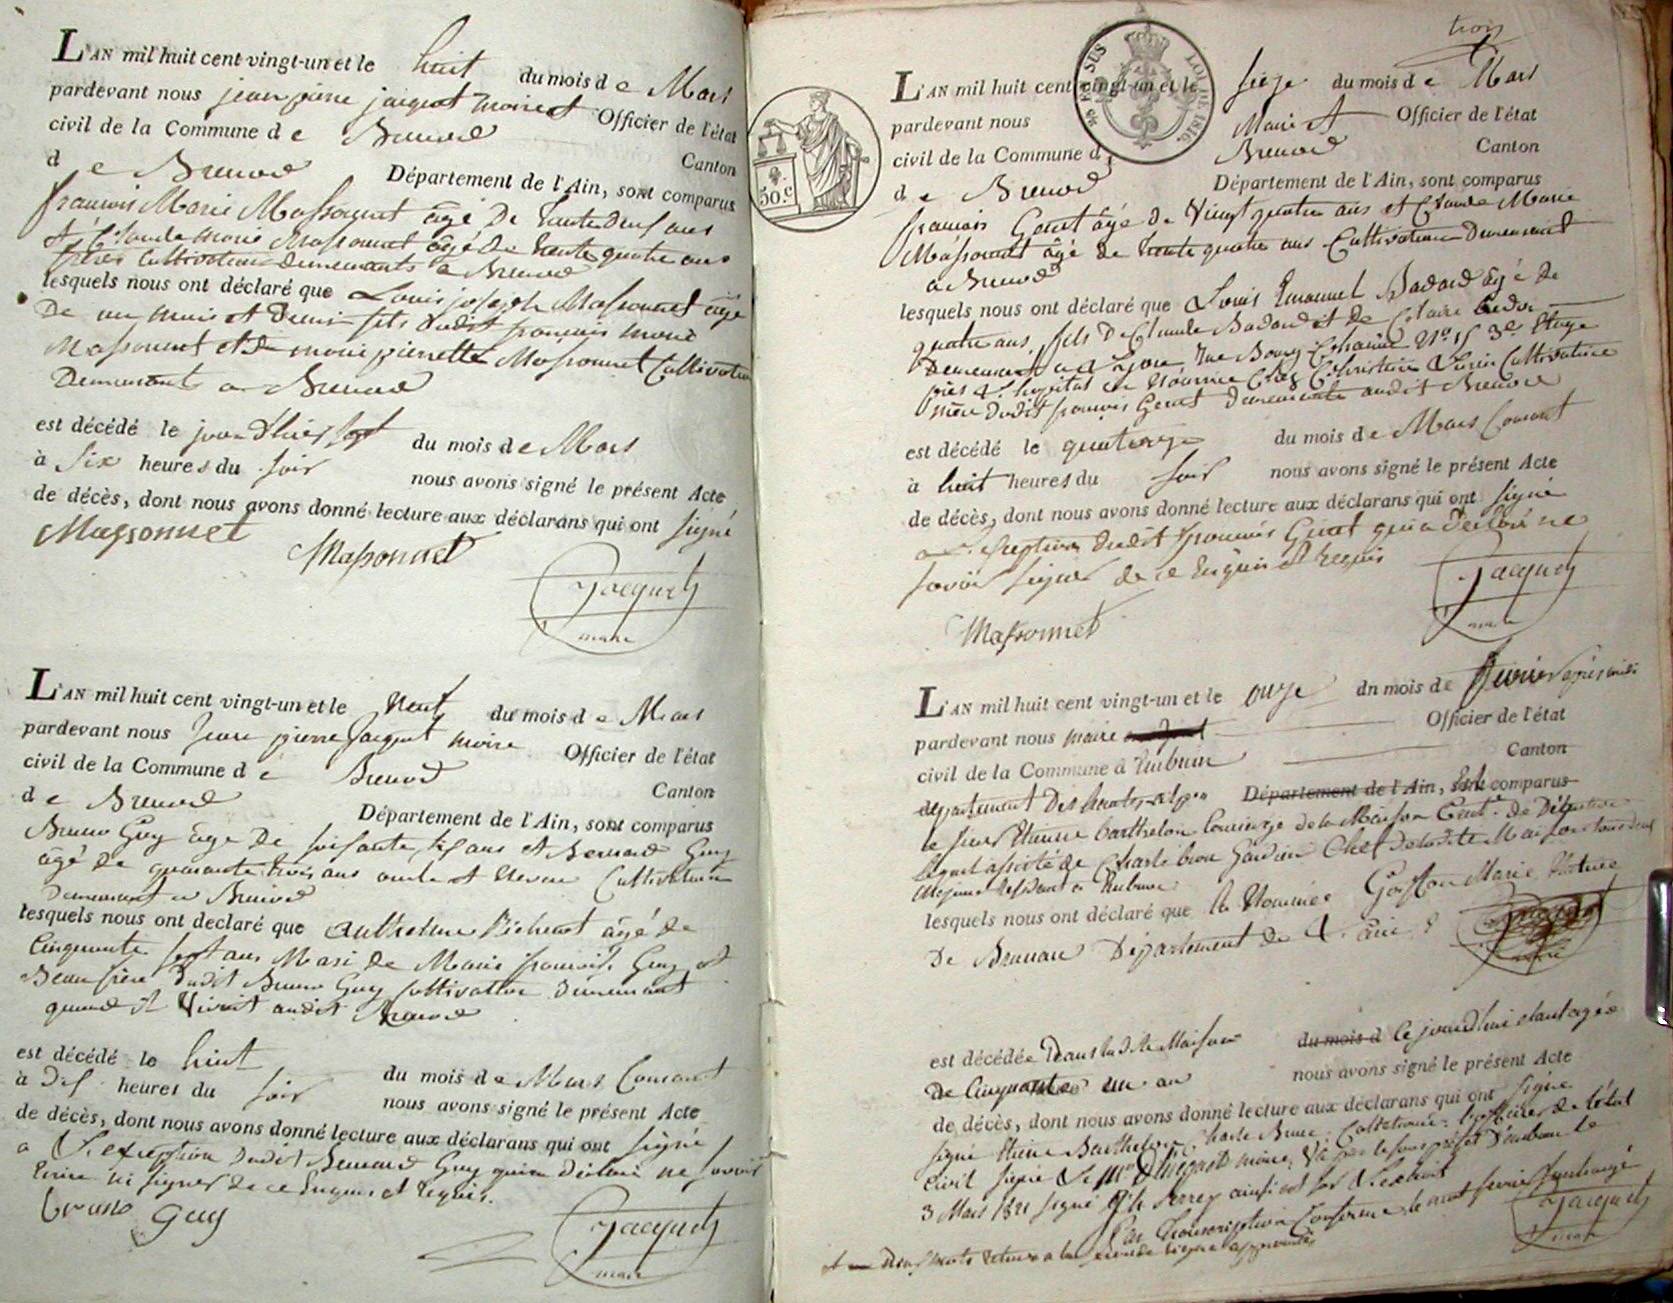 L'AN mil huit cent vingt-un et le huit du mois de Mars
pardevant nous jean pierre jacquet Officier de l'état
civil de la Commune de Brenod
de Brenod Canton
Département de l'Ain, sont comparus
francois Marie Massonnet âgé De trente deux ans
et Claude Marie Massonnet âgé de trente quatre ans
frères Cultivateurs demeurants a Brenod
lesquels nous ont déclaré que Louis joseph Massonnet âgé
De un mois et Demi fils dudit francois Marie
Massonnet et de marie pierrette Massonnet Cultivateurs
Demeurants a Brenod
est décédé le jour d'hier sept du mois de Mars
à Six heures du soir nous avons signé le présent Acte
de décès, dont nous avons donné lecture aux déclarans qui ont signé
Massonnet
Massonnet
Jacquet
maire
L'AN mil huit cent vingt-un et le neuf du mois de Mars
pardevant nous Jean pierre Jacquet maire Officier de l'état
civil de la Commune de Brenod
de Brenod Canton
Département de l'Ain, sont comparus
Bruno Guy âgé De soixante six ans et Bernard Guy
âgé De quarante trois ans oncle et Neveu Cultivateurs
Demeurant a Brenod
lesquels nous ont declaré que Anthelme Richerot âgé de
Cinquante sept ans Mari de Marie francoise Guy et
Beau frère dudit Bruno Guy Cultivateur demeurant
quand il Vivoit audit Brenod
est décédé le huit du mois de Mars Courant
à Dix heures du soir nous avons signé le présent Acte
de décès, dont nous avons donné lecture aux déclarans qui ont signé
a L'exception dudit Bernard Guy qui a déclaré ne savoir
Ecrire ni signer de ce Enquis et Requis.
bruno Guy
Jacquet
maire
50.c
LOI DE 1816.
trois
L'AN mil huit cent vingt-un et le seize du mois de Mars
pardevant nous Maire Officier de l'état
civil de la Commune d Brenod Canton
de Brenod Département de l'Ain, sont comparus
francois Genet âgé de Vingt quatre ans et Claude Marie
Massonnet âgé de trente quatre ans Cultivateurs Demeurant
a Brenod
lesquels nous ont déclaré que Louis Emanuel Badard âgé De
quatre ans, fils De Claude Badard et de Claire
Demeurant a Lyon Rue Bourg Chanin N.o 15 3.e Etage
près L'hopital en Nourrice Chez Christine Cultivatrice
mère dudit francois Genet Demeurante audit Brenod
est décédé le quatorze du mois de Mars Courant
à huit heures du soir nous avons signé le présent Acte
de décès, dont nous avons donné lecture aux déclarans qui ont signé
a L'exception dudit francois Genet qui a declaré ne
savoir signer de ce Enquis et Requis
Massonnet
Jacquet
maire
L'AN mil huit cent vingt-un et le onze du mois de fevrier après midi
pardevant nous maire Officier de l'état
civil de la Commune d Embrun Canton
departement Des hautes alpes Département de l'Ain, Est comparus
le sieur Etienne barthelon Concierge de la Maison Cent.e de Détention
lequel assisté de Charle brun Gardien Chef De ladite Maison tous deux
Majeurs Residant a Embrun
lesquels nous ont déclaré que la Nommée Marie Native
De Brenau Département de L'ain
est décédée Dans la dite Maison du mois d Ce jourd'hui étant agée
De Cinquante un an nous avons signé le présent Acte
de décès, dont nous avons donné lecture aux déclarans qui ont signé
signé Etiene Barthelon, Charle Brun. l'officier de l'état
Civil signé maire, Vu par le sous préfet d'Embrun le
3 Mars 1821 signé ainsi est sur L'extrait
Par Transcription Conforme le mot fevrier surchargé
et Deux mots Rature a la seconde ligne approuvés
Jacquet
maire